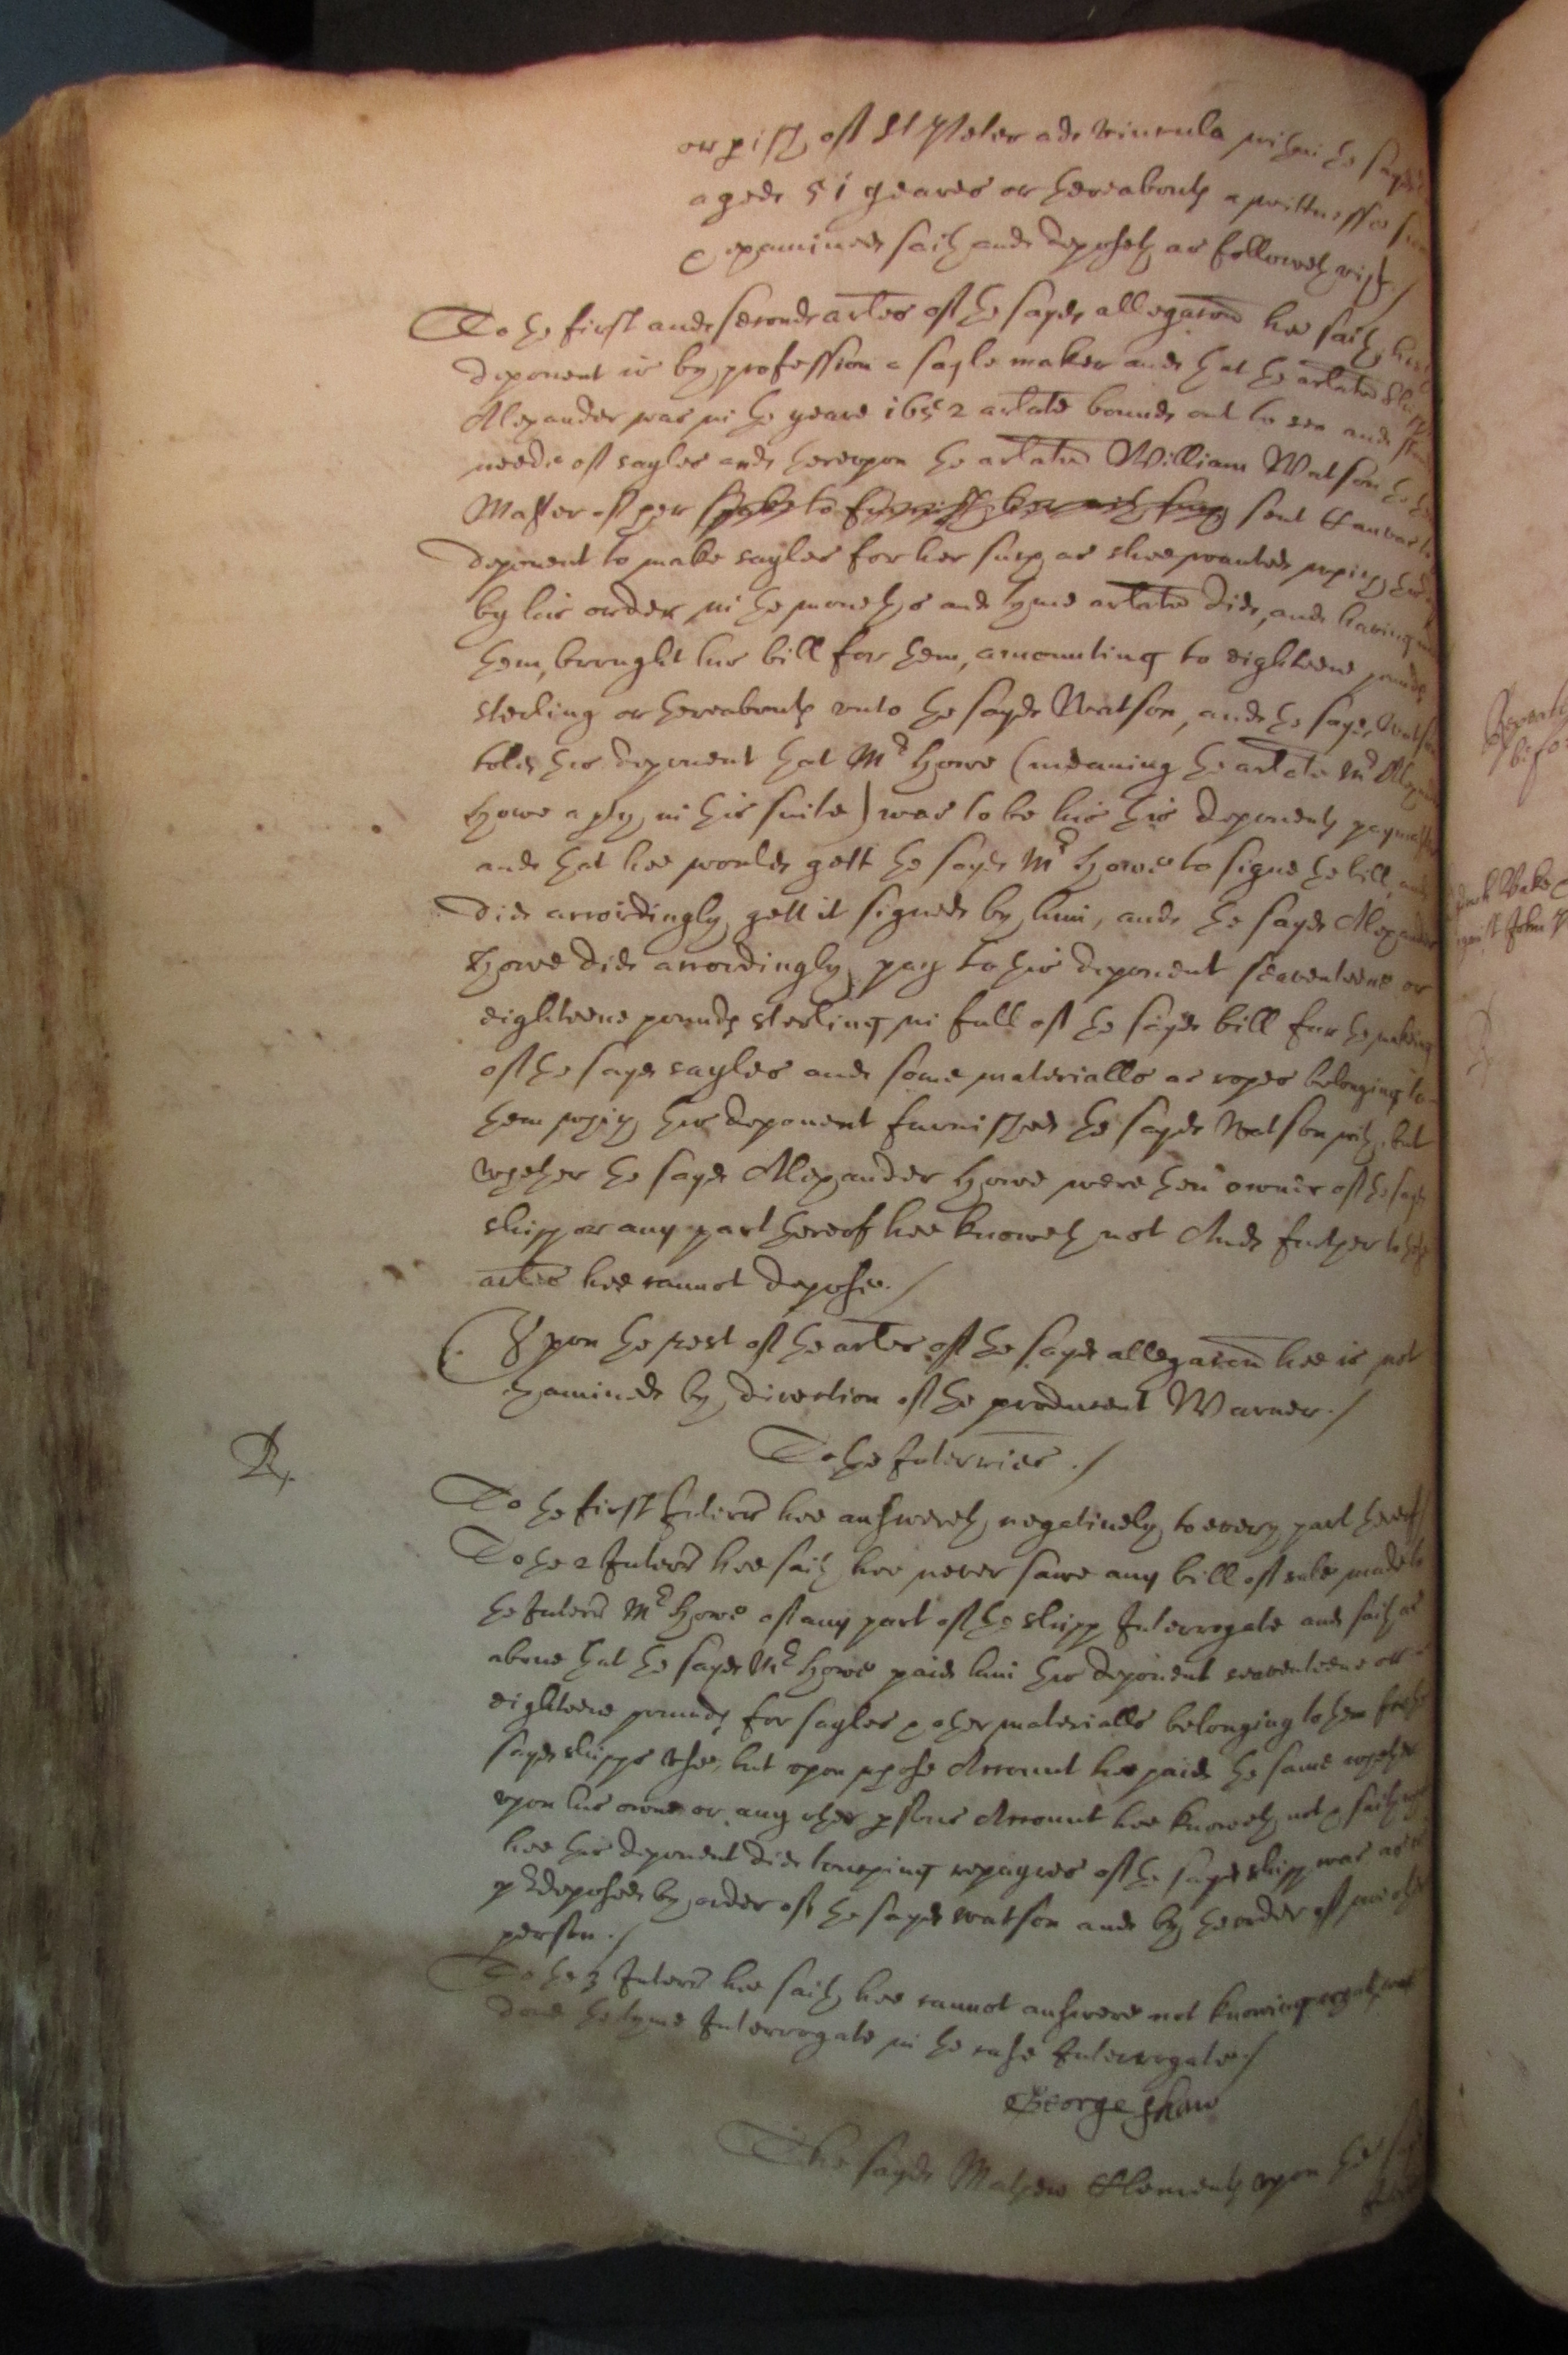 or pish of St Peter ads Vincula within the sayd
aged 51 yeares or thereabouts a wittnesse
examined saith and deposeth as followeth vizt./
To the first and second artles of the sayd allegacon hee saith
deponent is by profession a sayle maker and that the arlate shipp
Alexander was in the yeare 1652 arlate bound out to sea and
neede of sayles and thereupon the arlate William Watson the
Master of her spake to furnish her with such sent Canvas to
deponent to make sayles for her such as shee wanted which this
by his order in the moneths and tyme arlate did, and having
them, brought his bill for them, amounting to eighteene pounds
sterling or thereabouts unto the sayd Watson, and the sayd Watson
told this deponent that Mr Howe (meaning the arlate Mr
Howe a pty in this suite) was to be his this deponents paymaster
and that hee would gett the sayd Mr Howe to signe the bill, and
did accordingly gett it signed by him, and the sayd Alexander
Howe did accordingly pay to this deponent seaventeene or
eighteene pounds sterling in full of the sayd bill for the making
of the sayd sayles and some materialls as ropes belonging to
them which this deponent furnished the sayd Watson with, but
whether the sayd Alexander Howe were then owner of the sayd
shipp or any part thereof hee knoweth not And further to
artles hee cannot depose./
Upon the rest of the artles of the sayd allegacon hee is not
examined by direction of the producent Warner./
To the Interries./
To the first Interrie hee answereth negatively to every part thereof
To the 2 Interrie hee saith hee never sawe any bill of sale made to
the Interrie Mr Howe of any part of the shipp Interrogate and saith as
above that the sayd Mr Howe paid him this deponent seaventeene or
eighteene pounds for sayles & other materialls belonging to them for the
sayd shipps use, but upon whose Account hee paid the same whether
upon his owne or any other psons Account hee knoweth not & saith
hee this deponent did touching repayres of the sayd shipp was as is
predeposed by order of the sayd Watson and by the order of noe other
person./
To the 3 Interrie hee saith hee cannot answere not knowing what was
done the tyme Interrogate in the case Interrogate./
George Shaw
R.
The sayd Mathew Clements upon the sayd